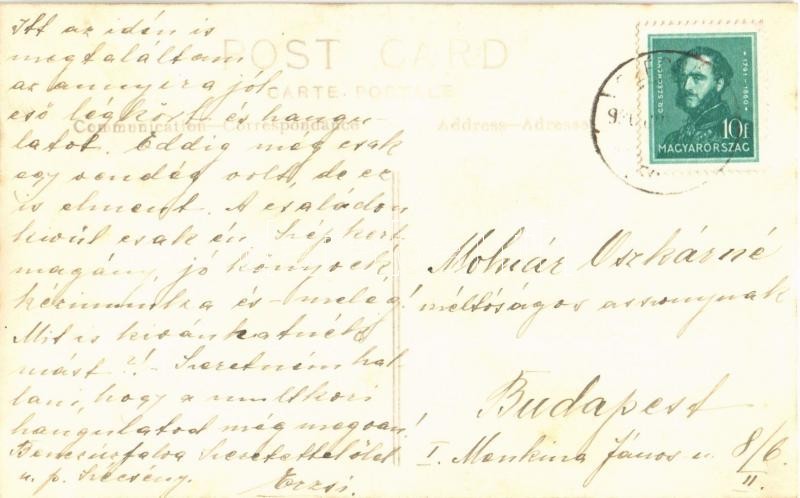 Itt az idén is
megtaláltam
az annyira jól
eső légkört és hangu-
latot. Eddig még csak
egy vendég volt, de ez
is elment. A családon
kívül csak én. Szép kert
magány, jó könyvek,
kézimunka és - meleg!
Mit is kívánhatnék
mást?! - Szeretném hal-
lani, hogy a multkori
hangulatod még megvan!
Benczúrfalva Szeretettel ölel
u. p. Szécsény. Erzsi.
POST CARD
CARTE POSTALE
Communication-Correspondance
Address-Adresse
GR. SZÉCHENYI
1791-1860
10f
MAGYARORSZÁG
Molnár Oszkárné
méltóságos asszonynak
Budapest
I. Menkina János u. 8/b.
II.